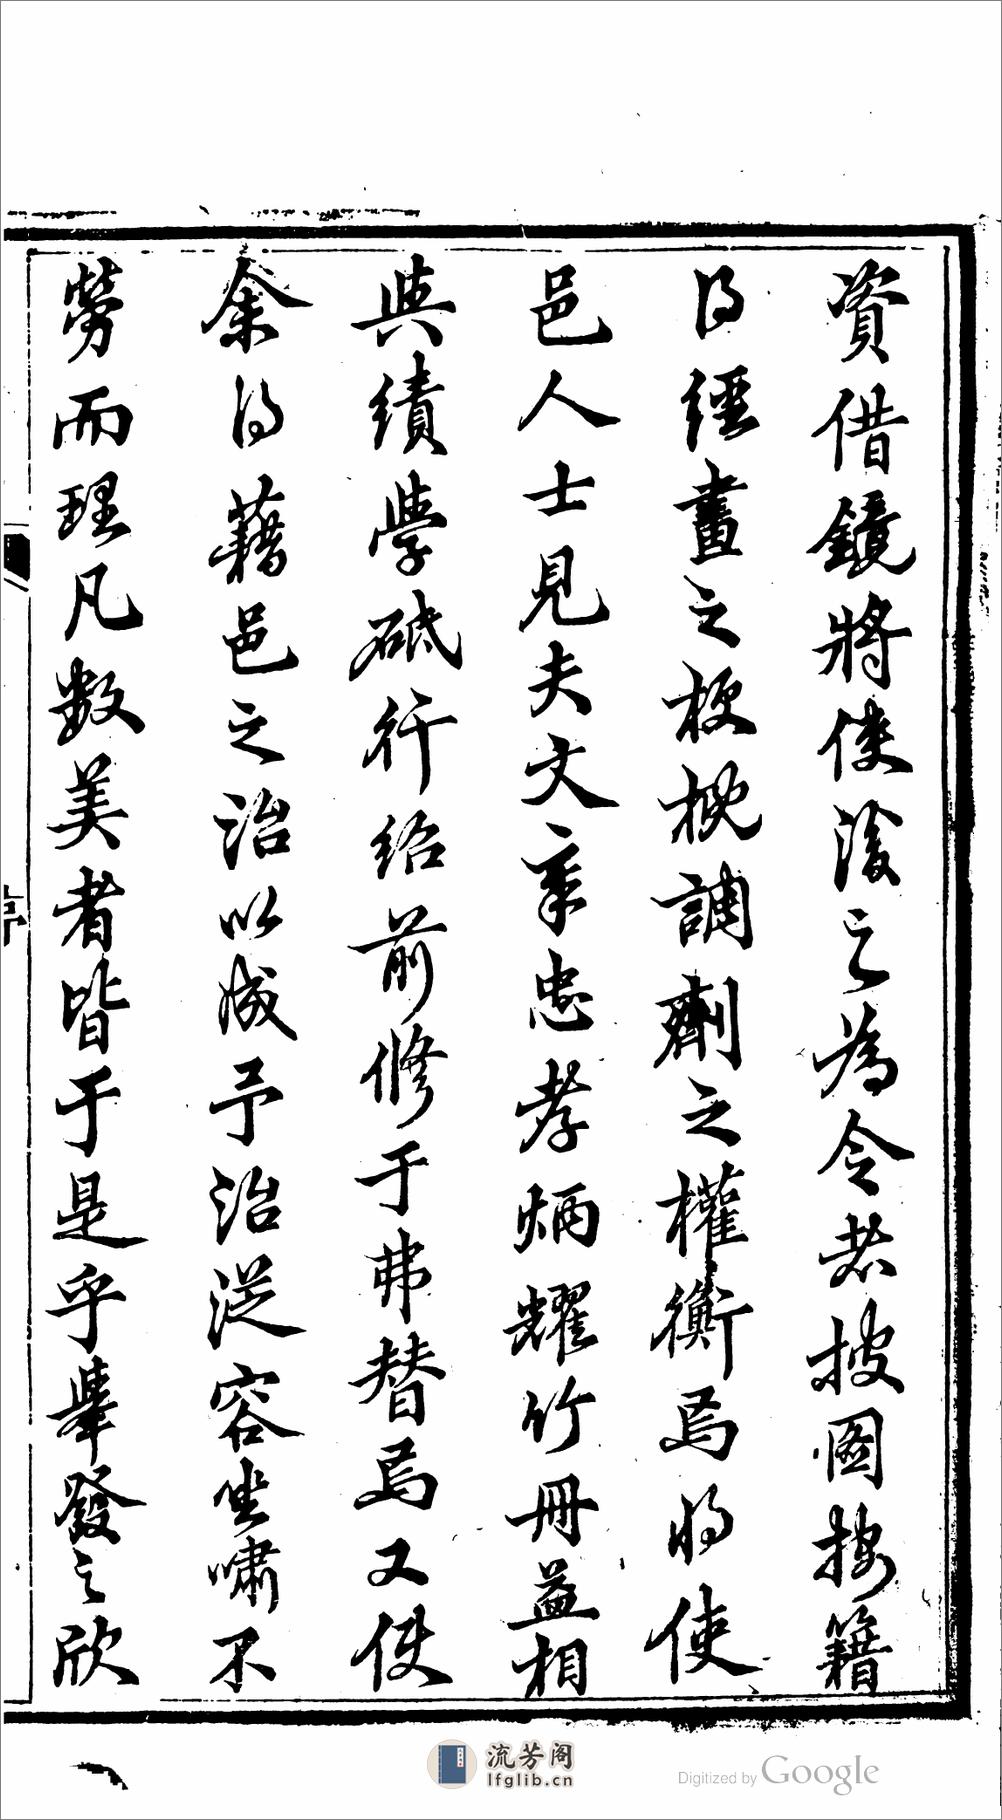 資借鏡將使後之為令者披圖按籍
得經畫之梗概調劑之權衡焉將使
邑人士見夫文章忠孝炳耀竹冊益相
與績學砥行紹前修于弗替焉又使
余得藉邑之治以成予治從容坐嘯不
勞而理凡數美者皆于是乎舉發之欣
序
流芳阁
lfglib.cn
Digitized by Google